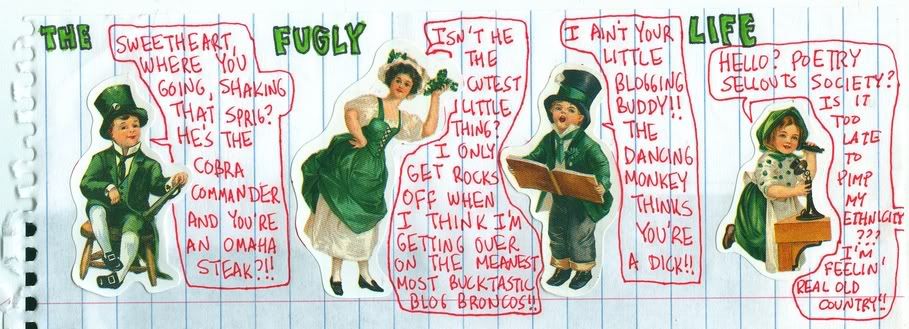 THE FUGLY LIFE
SWEETHEART,
WHERE YOU
GOING, SHAKING
THAT SPRIG?
HE'S THE
COBRA
COMMANDER
AND YOU'RE
AN OMAHA
STEAK?!!
ISN'T HE
THE
CUTEST
LITTLE
THING?
I ONLY
GET ROCKS
OFF WHEN
I THINK I'M
GETTING OVER
ON THE MEANEST
MOST BUCKTASTIC
BLOG BRONCOS!!
I AIN'T YOUR
LITTLE
BLOGGING
BUDDY!!
THE
DANCING
MONKEY
THINKS
YOU'RE
A DICK!!
HELLO? POETRY
SELLOUTS SOCIETY?
IS IT
TOO
LATE
TO
PIMP
MY
ETHNICITY
???
I'M
FEELIN'
REAL OLD
COUNTRY!!